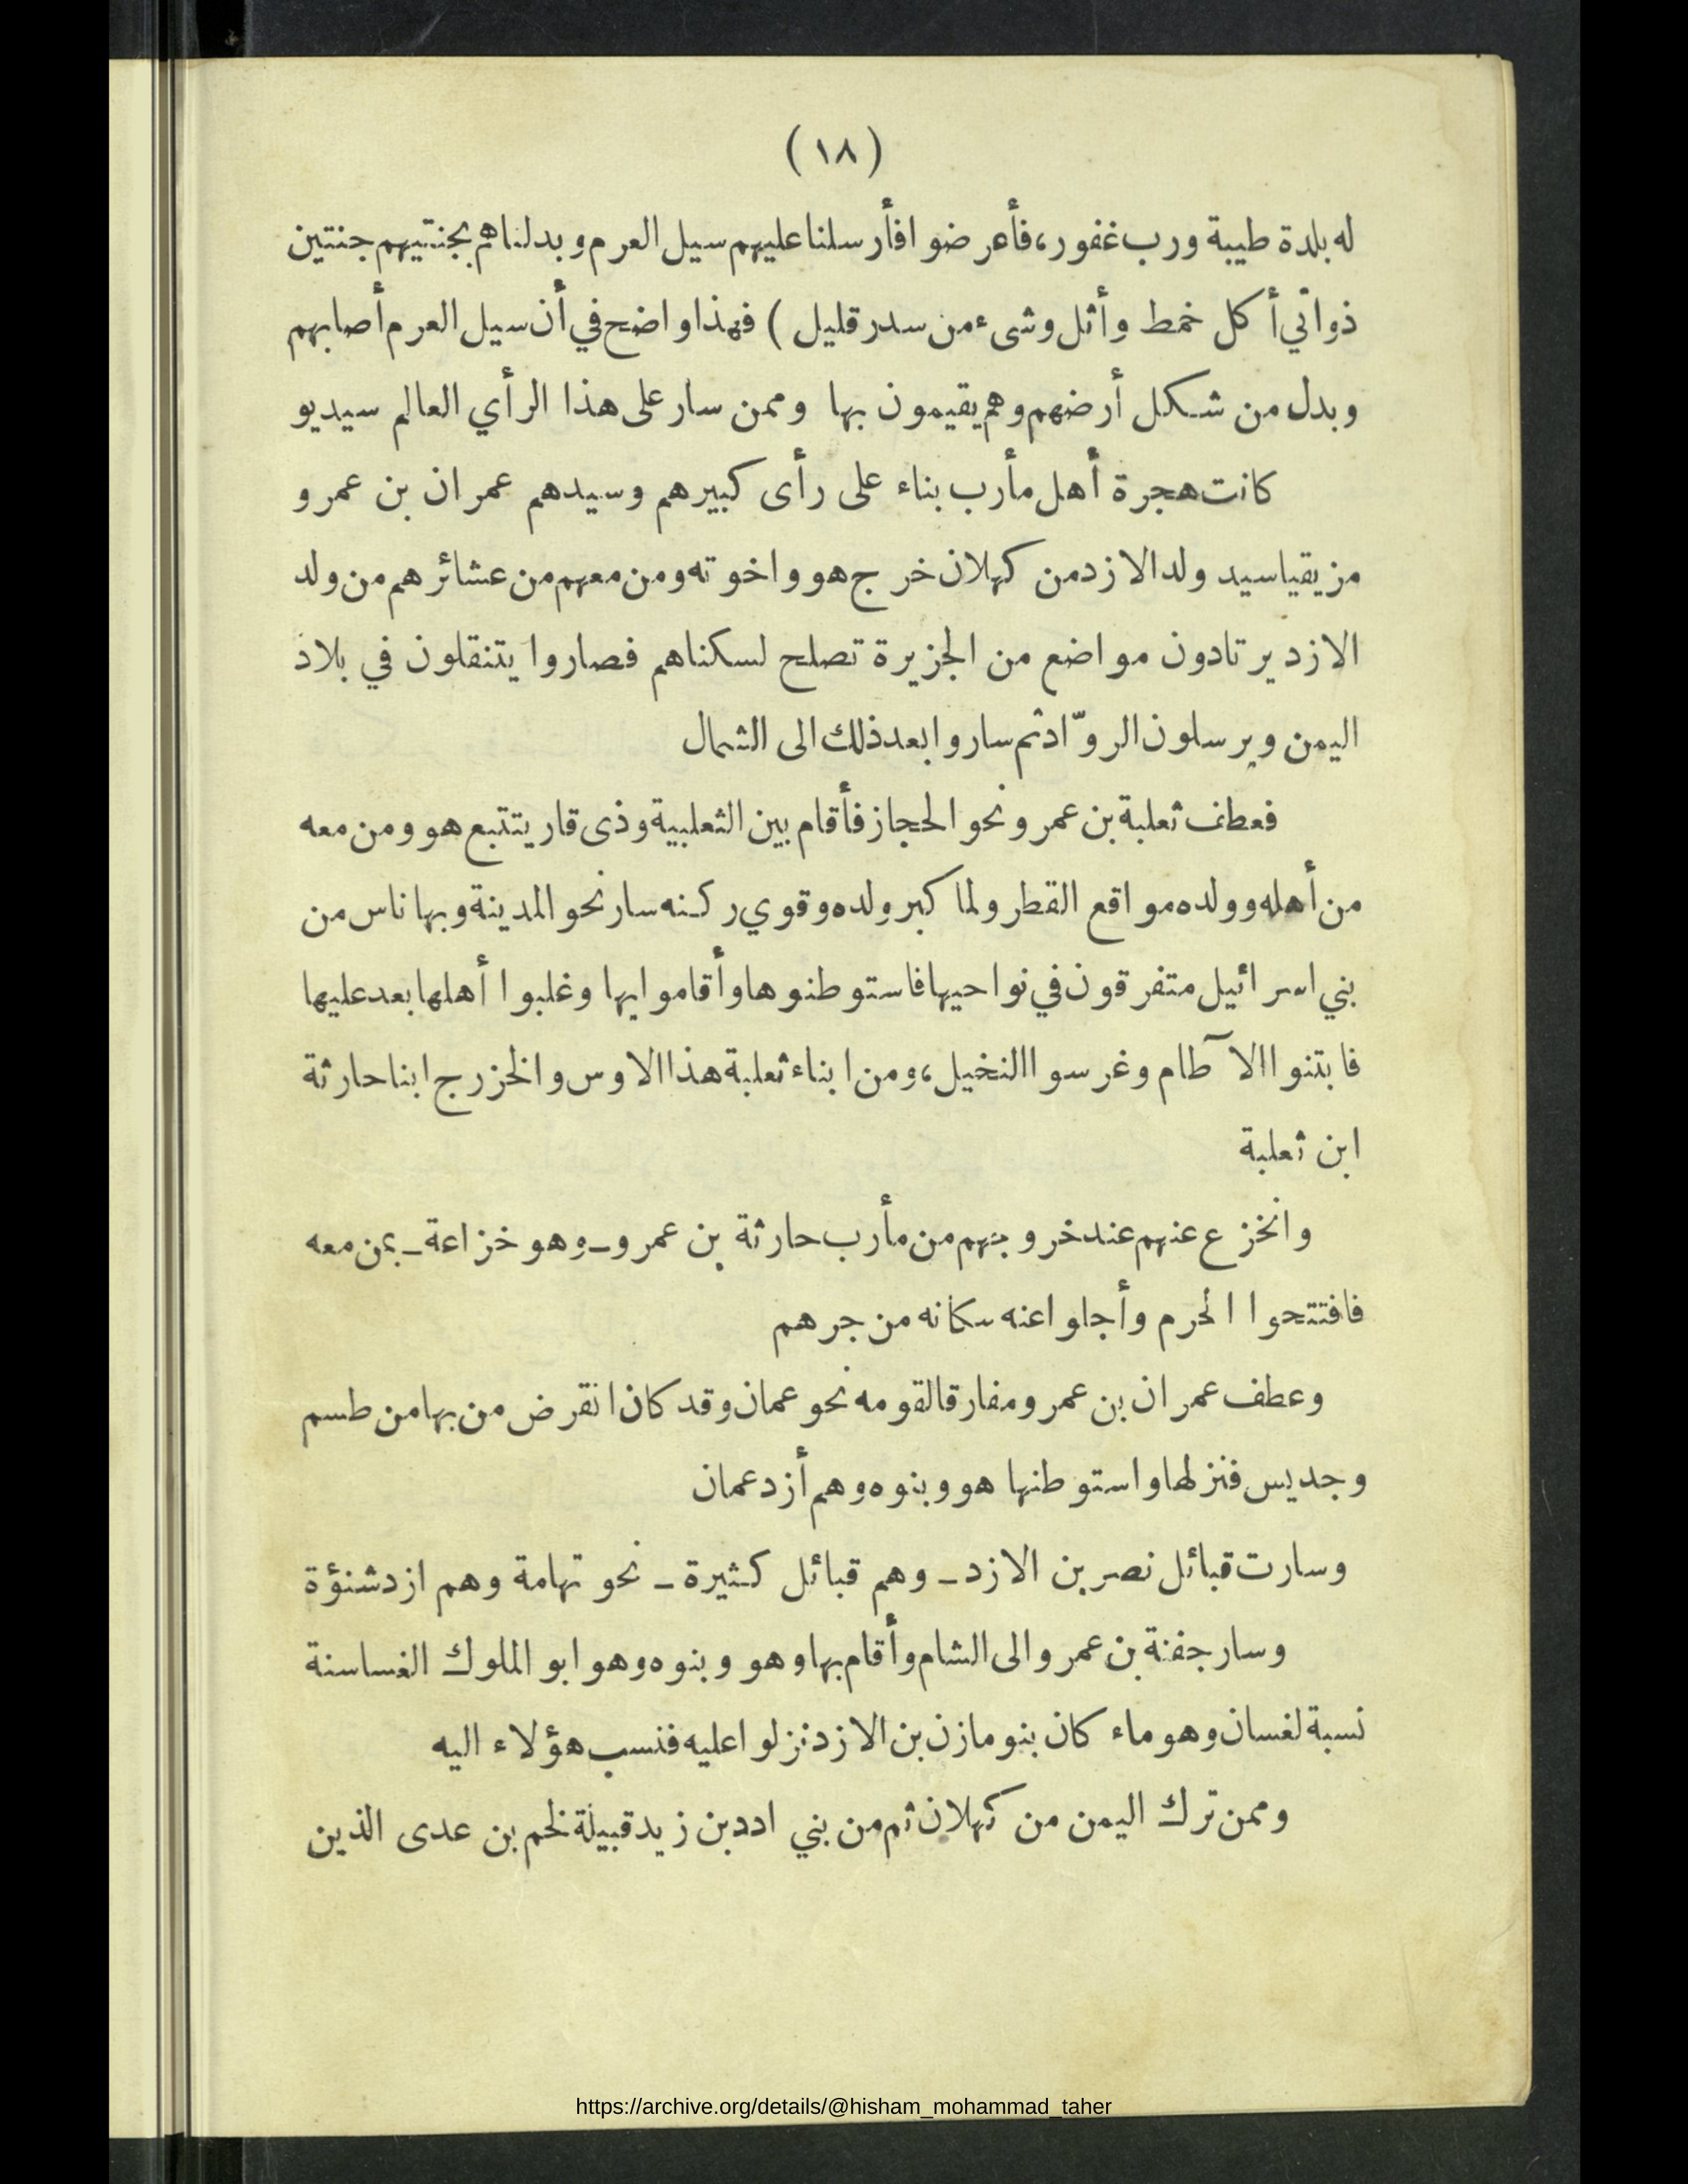 (١٨)
له بلدة طيبة ورب غفور، فأعرضوا فأرسلنا عليهم سيل العرم وبدلناهم بجنتيهم جنتين
ذواتي أكل خمط وأثل وشىء من سدر قليل ) فهذا واضح في أن سيل العرم أصابهم
وبدل من شكل أرضهم وهم يقيمون بها وممن سار على هذا الرأي العالم سيديو
كانت هجرة أهل مأرب بناء على رأى كبيرهم وسيدهم عمران بن عمرو
مزيقيا سيد ولد الازد من كهلان خرج هو واخوته ومن معهم من عشائرهم من ولد
الازد يرتادون مواضع من الجزيرة تصلح لسكناهم فصاروا يتنقلون في بلاد
اليمن ويرسلون الروّاد ثم ساروا بعد ذلك الى الشمال
فعطف ثعلبة بن عمرو نحو الحجاز فأقام بين الثعلبية وذى قار يتتبع هو ومن معه
من أهله وولده مواقع القطر ولما كبر ولده وقوي ركنه سار نحو المدينة وبها ناس من
بني اسرائيل متفرقون في نواحيها فاستوطنوها وأقاموا بها وغلبوا أهلها بعد عليها
فابتنوا الآطام وغرسوا النخيل، ومن ابناء ثعلبة هذا الاوس والخزرج ابنا حارثة
ابن ثعلبة
وانخزع عنهم عند خروجهم من مأرب حارثة بن عمرو ـ وهو خزاعة ـ بمن معه
فافتتحوا الحرم وأجلوا عنه سكانه من جرهم
وعطف عمران بن عمرو مفارقا لقومه نحو عمان وقد كان انقرض من بها من طسم
وجديس فنزلها واستوطنها هو وبنوه وهم أزد عمان
وسارت قبائل نصر بن الازد ـ وهم قبائل كثيرة ـ نحو تهامة وهم ازد شنؤة
وسار جفنة بن عمرو الى الشام وأقام بها وهو وبنوه وهو ابو الملوك الغساسنة
نسبة لغسان وهو ماء كان بنو مازن بن الازد نزلوا عليه فنسب هؤلاء اليه
وممن ترك اليمن من كهلان ثم من بني ادد بن زيد قبيلة لخم بن عدى الذين
https://archive.org/details/@hisham_mohammad_taher